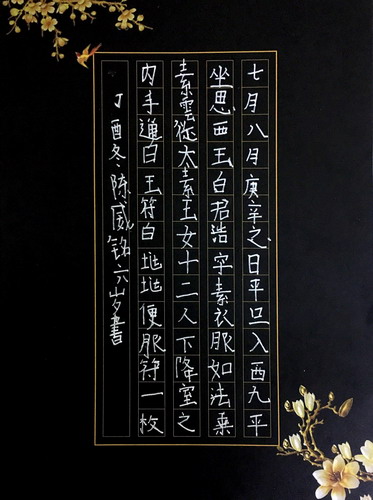 七月八月庚辛之日平旦入西九平
坐思西王白君浩字素衣服如法乘
素雲從太素王女十二人下降室之
内手通白王符白地地便服符一枚
丁酉冬陈威铭六岁書